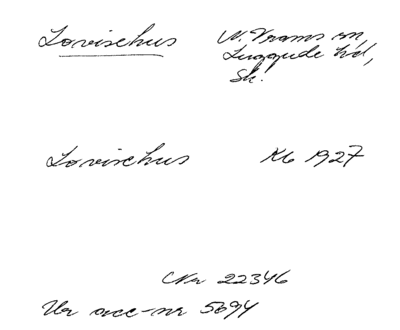 Lovisehus N. Vrams sn,
Luggude hd,
Sk.
Lovisehus Kb 1927
CNr 22346
Ur acc-nr 5694